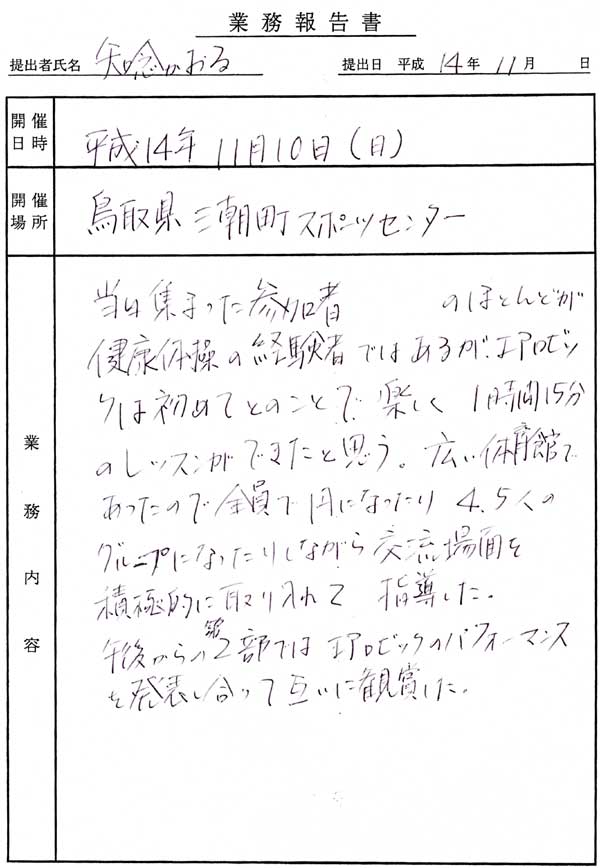 業務報告書
提出者氏名 知念かおる 提出日 平成 14年 11月 日
開催日時 平成14年 11月10日(日)
開催場所 鳥取県 三朝町 スポーツセンター
業務内容
当日集まった参加者 のほとんどが
健康体操の経験者ではあるが、エアロビッ
クは初めてとのことで、楽しく 1時間15分
のレッスンができたと思う。広い体育館で
あったので全員で円になったり 4.5人の
グループになったりしながら交流場面を
積極的に取り入れて 指導した。
午後からの第2部では エアロビックのパフォーマンス
を発表し合って互いに観賞した。